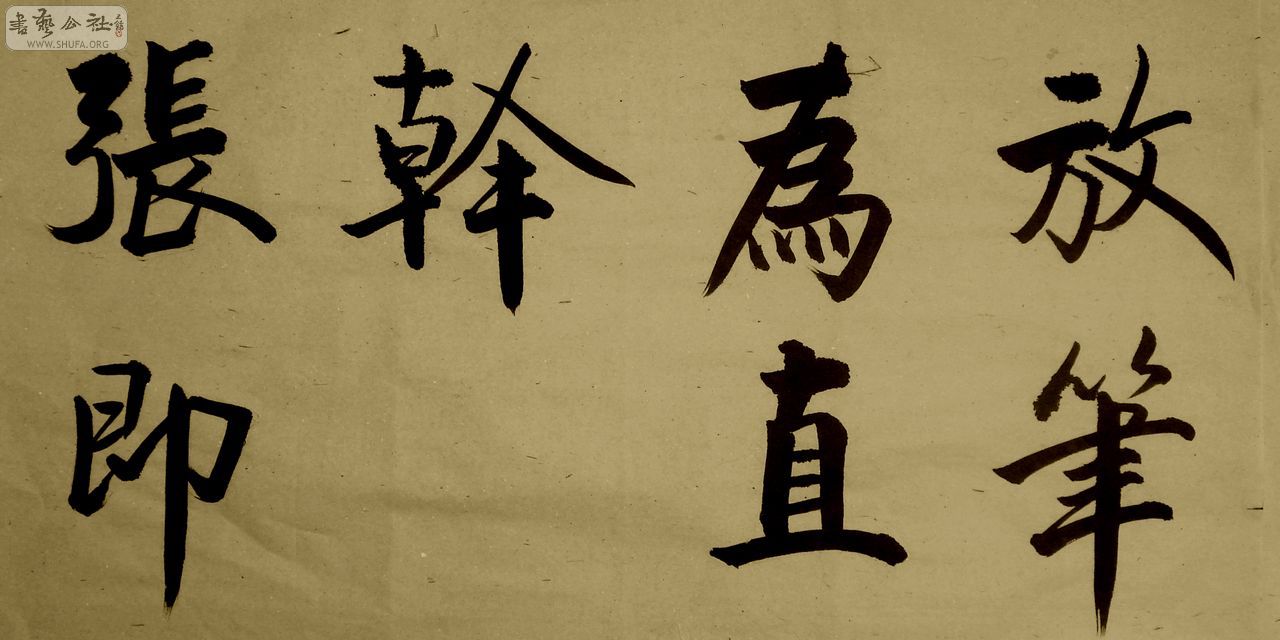 放筆
為直
幹
張即
書藝公社
WWW.SHUFA.ORG